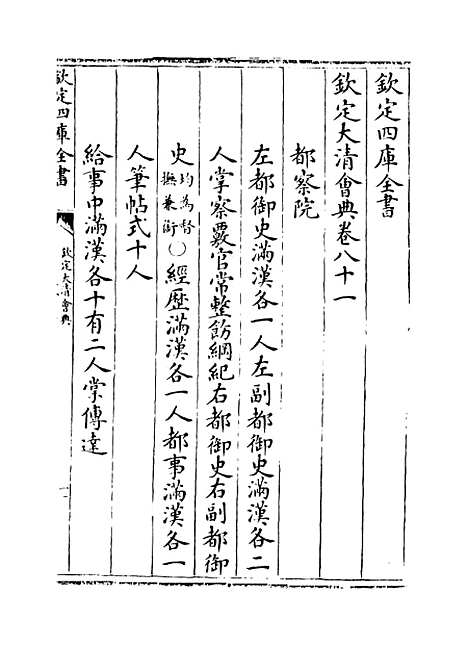 欽定四庫全書
欽定大清會典卷八十一
都察院
左都御史滿漢各一人左副都御史滿漢各二
人掌察覈官常整飭綱紀右都御史右副都御
史均為督撫兼銜○經歷滿漢各一人都事滿漢各一
人筆帖式十人
給事中滿漢各十有二人掌傳達
欽定四庫全書
欽定大清會典
一